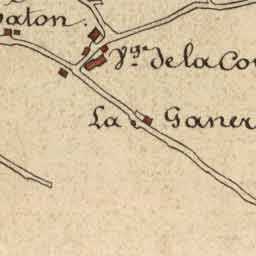 aton.
Vge de la Co
La Ganer